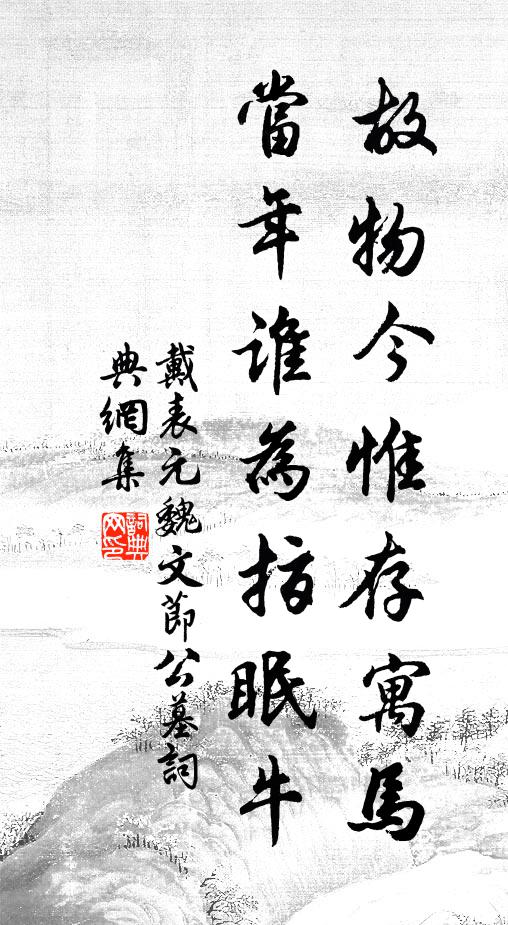 故物今惟存寓馬
當年誰為指眠牛
戴表元魏文節公墓詞
典網集
詞典网印